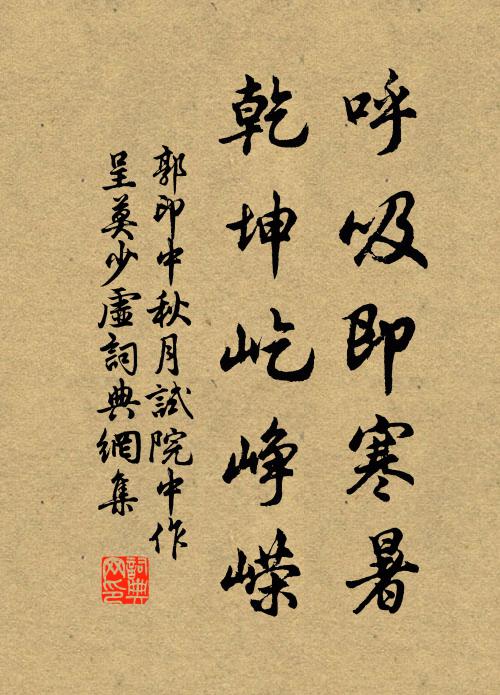 呼吸即寒暑
乾坤屹峥嶸
郭印中秋月試院中作
呈莫少虛詞典網集
詞典网印